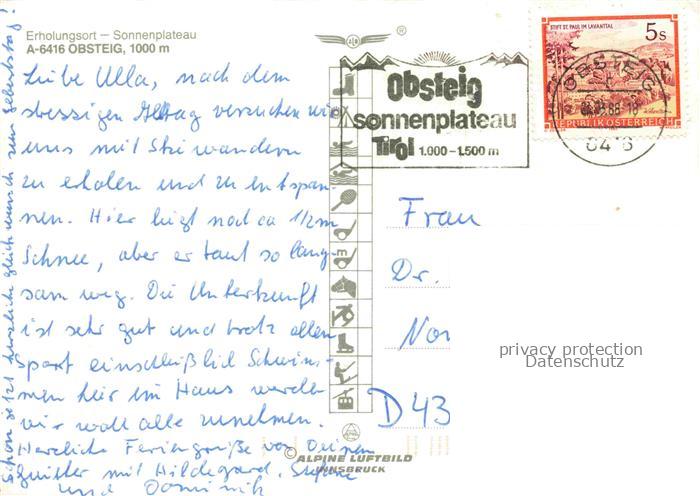 Erholungsort — Sonnenplateau
A-6416 OBSTEIG, 1000 m
Liebe Ulla, nach dem
stressigen Alltag versuchen wir
uns mit Skiwandern
zu erholen und zu entspan-
nen. Hier liegt noch ca 1/2 m
Schnee, aber er taut so lang-
sam weg. Die Unterkunft
ist sehr gut und trotz allem
Sport einschließlich Schwim-
men hier im Haus werden
wir wohl alle zunehmen.
Herzliche Feriengrüße von Deinem
mit Hildegard, Stefanie
und Dominik
Schon jetzt herzliche Glückwunsch zum Geburtstag!
Obsteig
Sonnenplateau
Tirol 1.000-1.500 m
STIFT ST. PAUL IM LAVANTTAL
5 S
REPUBLIK ÖSTERREICH
OBSTEIG
Frau
Dr.
D 43
privacy protection
Datenschutz
© ALPINE LUFTBILD
INNSBRUCK